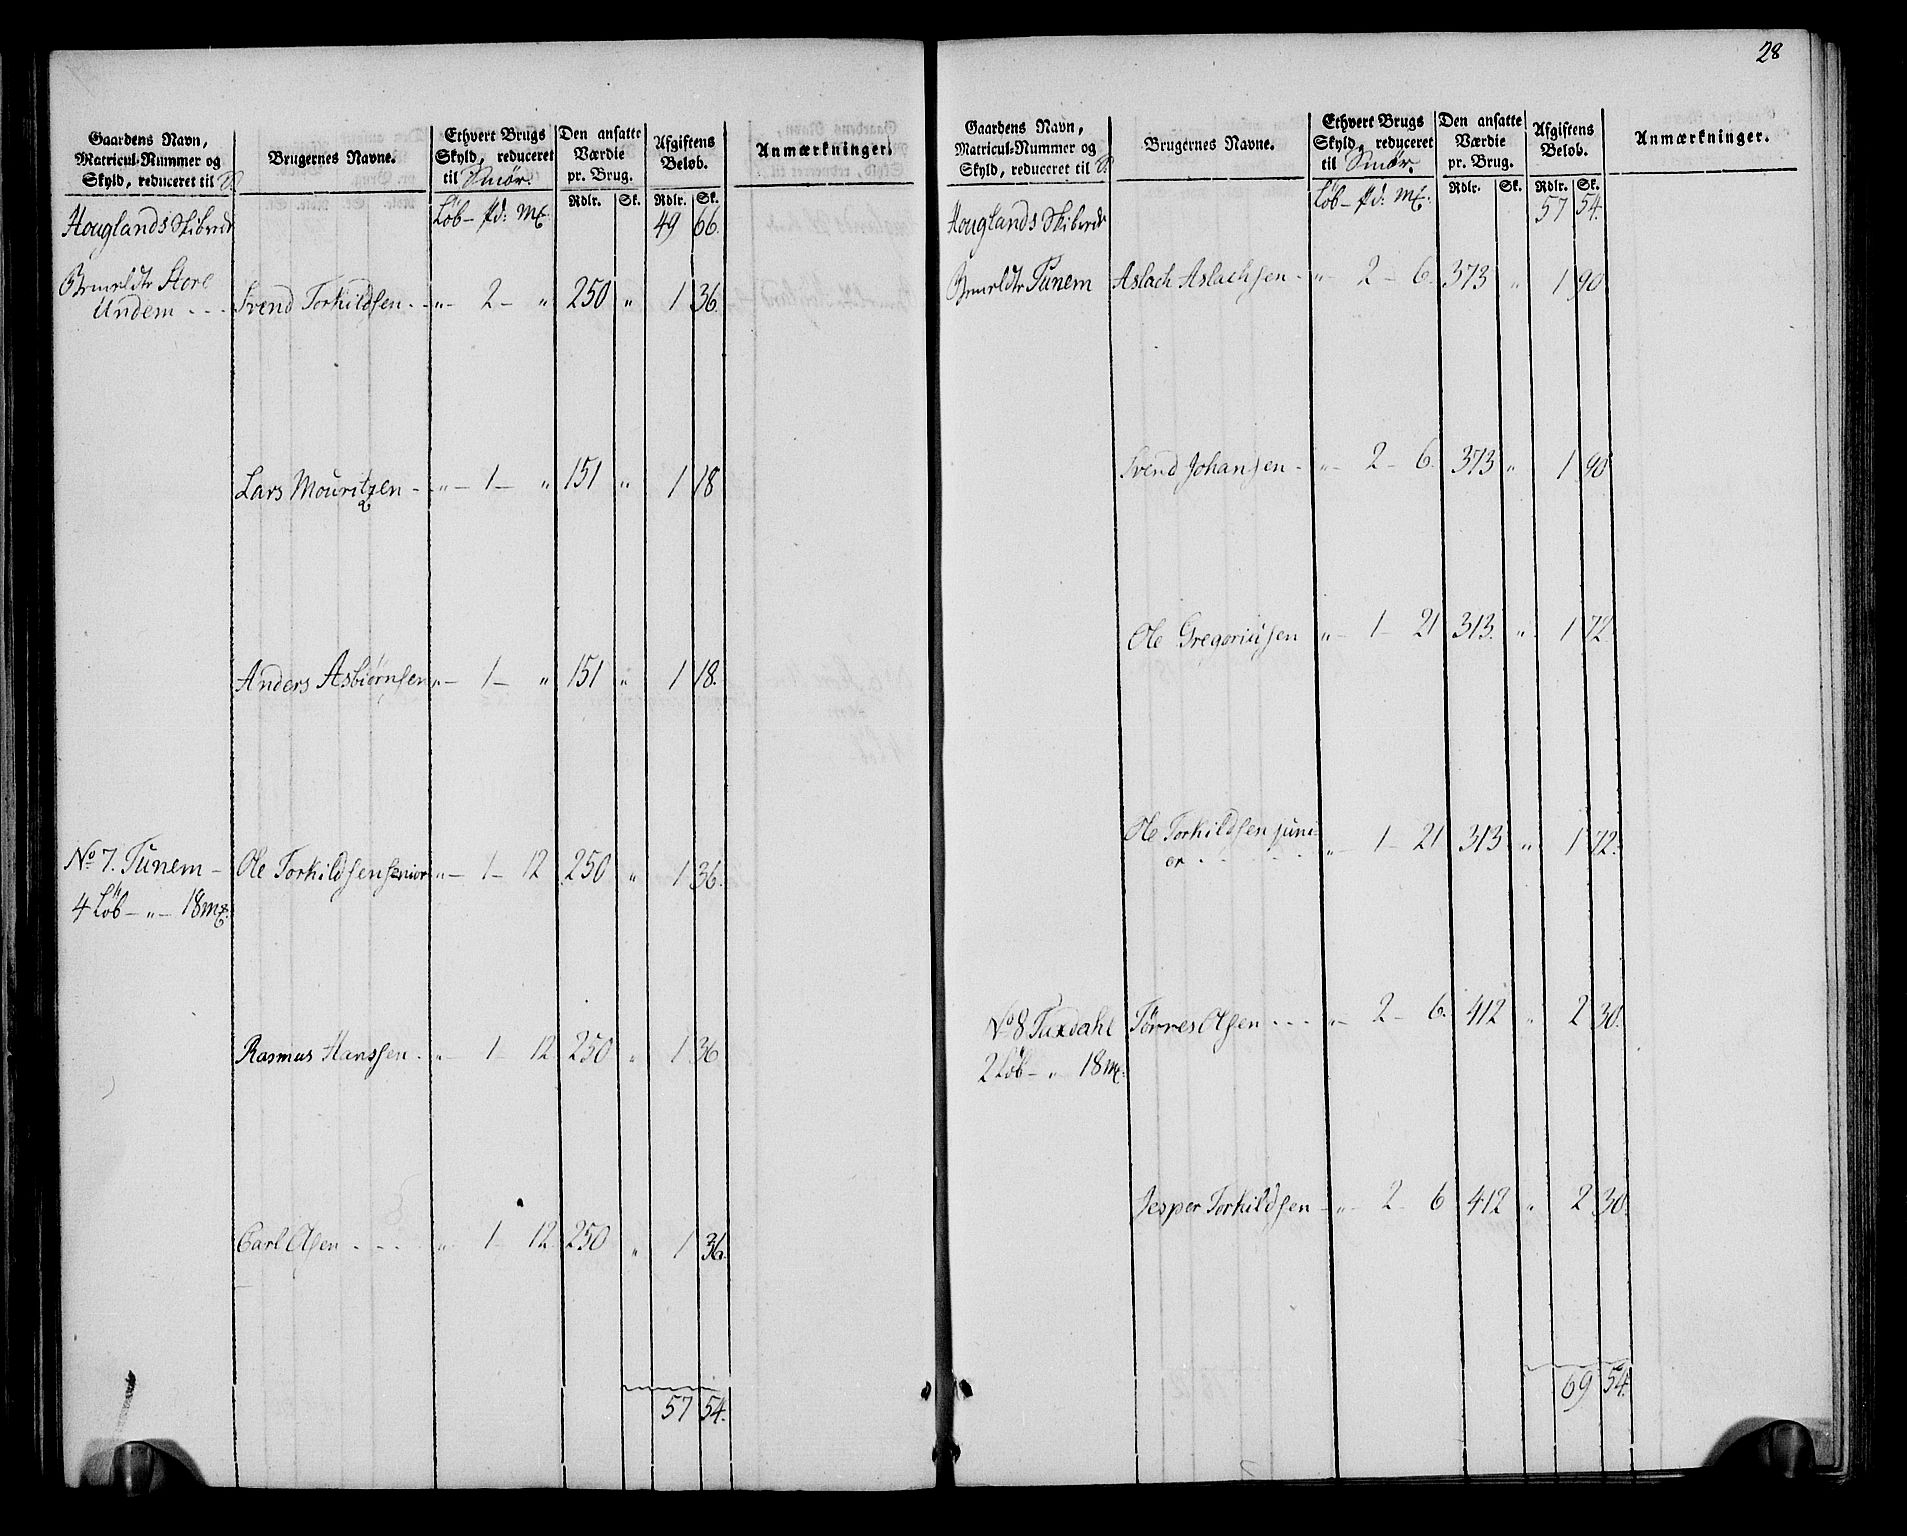 Gaardens Navn,
Matricul-Nummer og
Skyld, reduceret til
Brugernes Navne.
Ethvert Brugs
Skyld, reduceret
til Smør.
Den ansatte
Værdie
pr. Brug.
Afgiftens
Beløb.
Anmærkninger.
Rdlr. Sk. Rdlr. Sk.
Houglands Skibrede Løb - pd: mk. 49 66.
Store
Undem - - - Svend Torkildsen - - „ - 2 - „ 250 „ 1 36.
Lars Mouritzen - - „ - 1 - „ 151 „ 1 18
Anders Asbiørnsen „ - 1 - „ 151 „ 1 18.
No 7. Tunem - Ole Torkildsen senior „ - 1 - 12 250 „ 1 36.
4 Løb - „ - 18 mk.
Rasmus Hanssen - „ - 1 - 12 250 „ 1 36
Carl Olsen - - - - „ - 1 - 12 250 „ 1 36.
57 54.
28
Gaardens Navn,
Matricul-Nummer og
Skyld, reduceret til
Brugernes Navne.
Ethvert Brugs
Skyld, reduceret
til Smør.
Den ansatte
Værdie
pr. Brug.
Afgiftens
Beløb.
Anmærkninger.
Rdlr. Sk. Rdlr. Sk.
Houglands Skibrede Løb - pd: mk. 57 54.
Tunem Aslach Aslachsen - „ - 2 - 6. 373 „ 1 90
Svend Johansen - „ - 2 - 6. 373 „ 1 90
Ole Gregoriusen „ - 1 - 21 313. „ 1 72.
Ole Torkildsen juni-
or - - - - „ - 1 - 21 313 „ 1 72.
No 8 Tuxdahl Tørres Olsen - - - „ - 2 - 6. 412 „ 2 30.
2 Løb - „ - 18 mk.
Jesper Torkildsen - „ - 2 - 6 412 „ 2 30.
69 54.